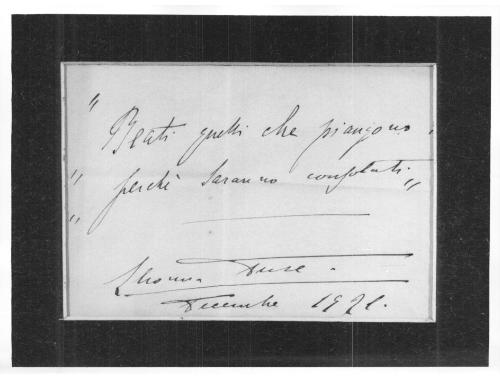 " Beati quelli che piangono,
" perchè saranno consolati "
"
Eleonora Duse.
Dicembre 1921.